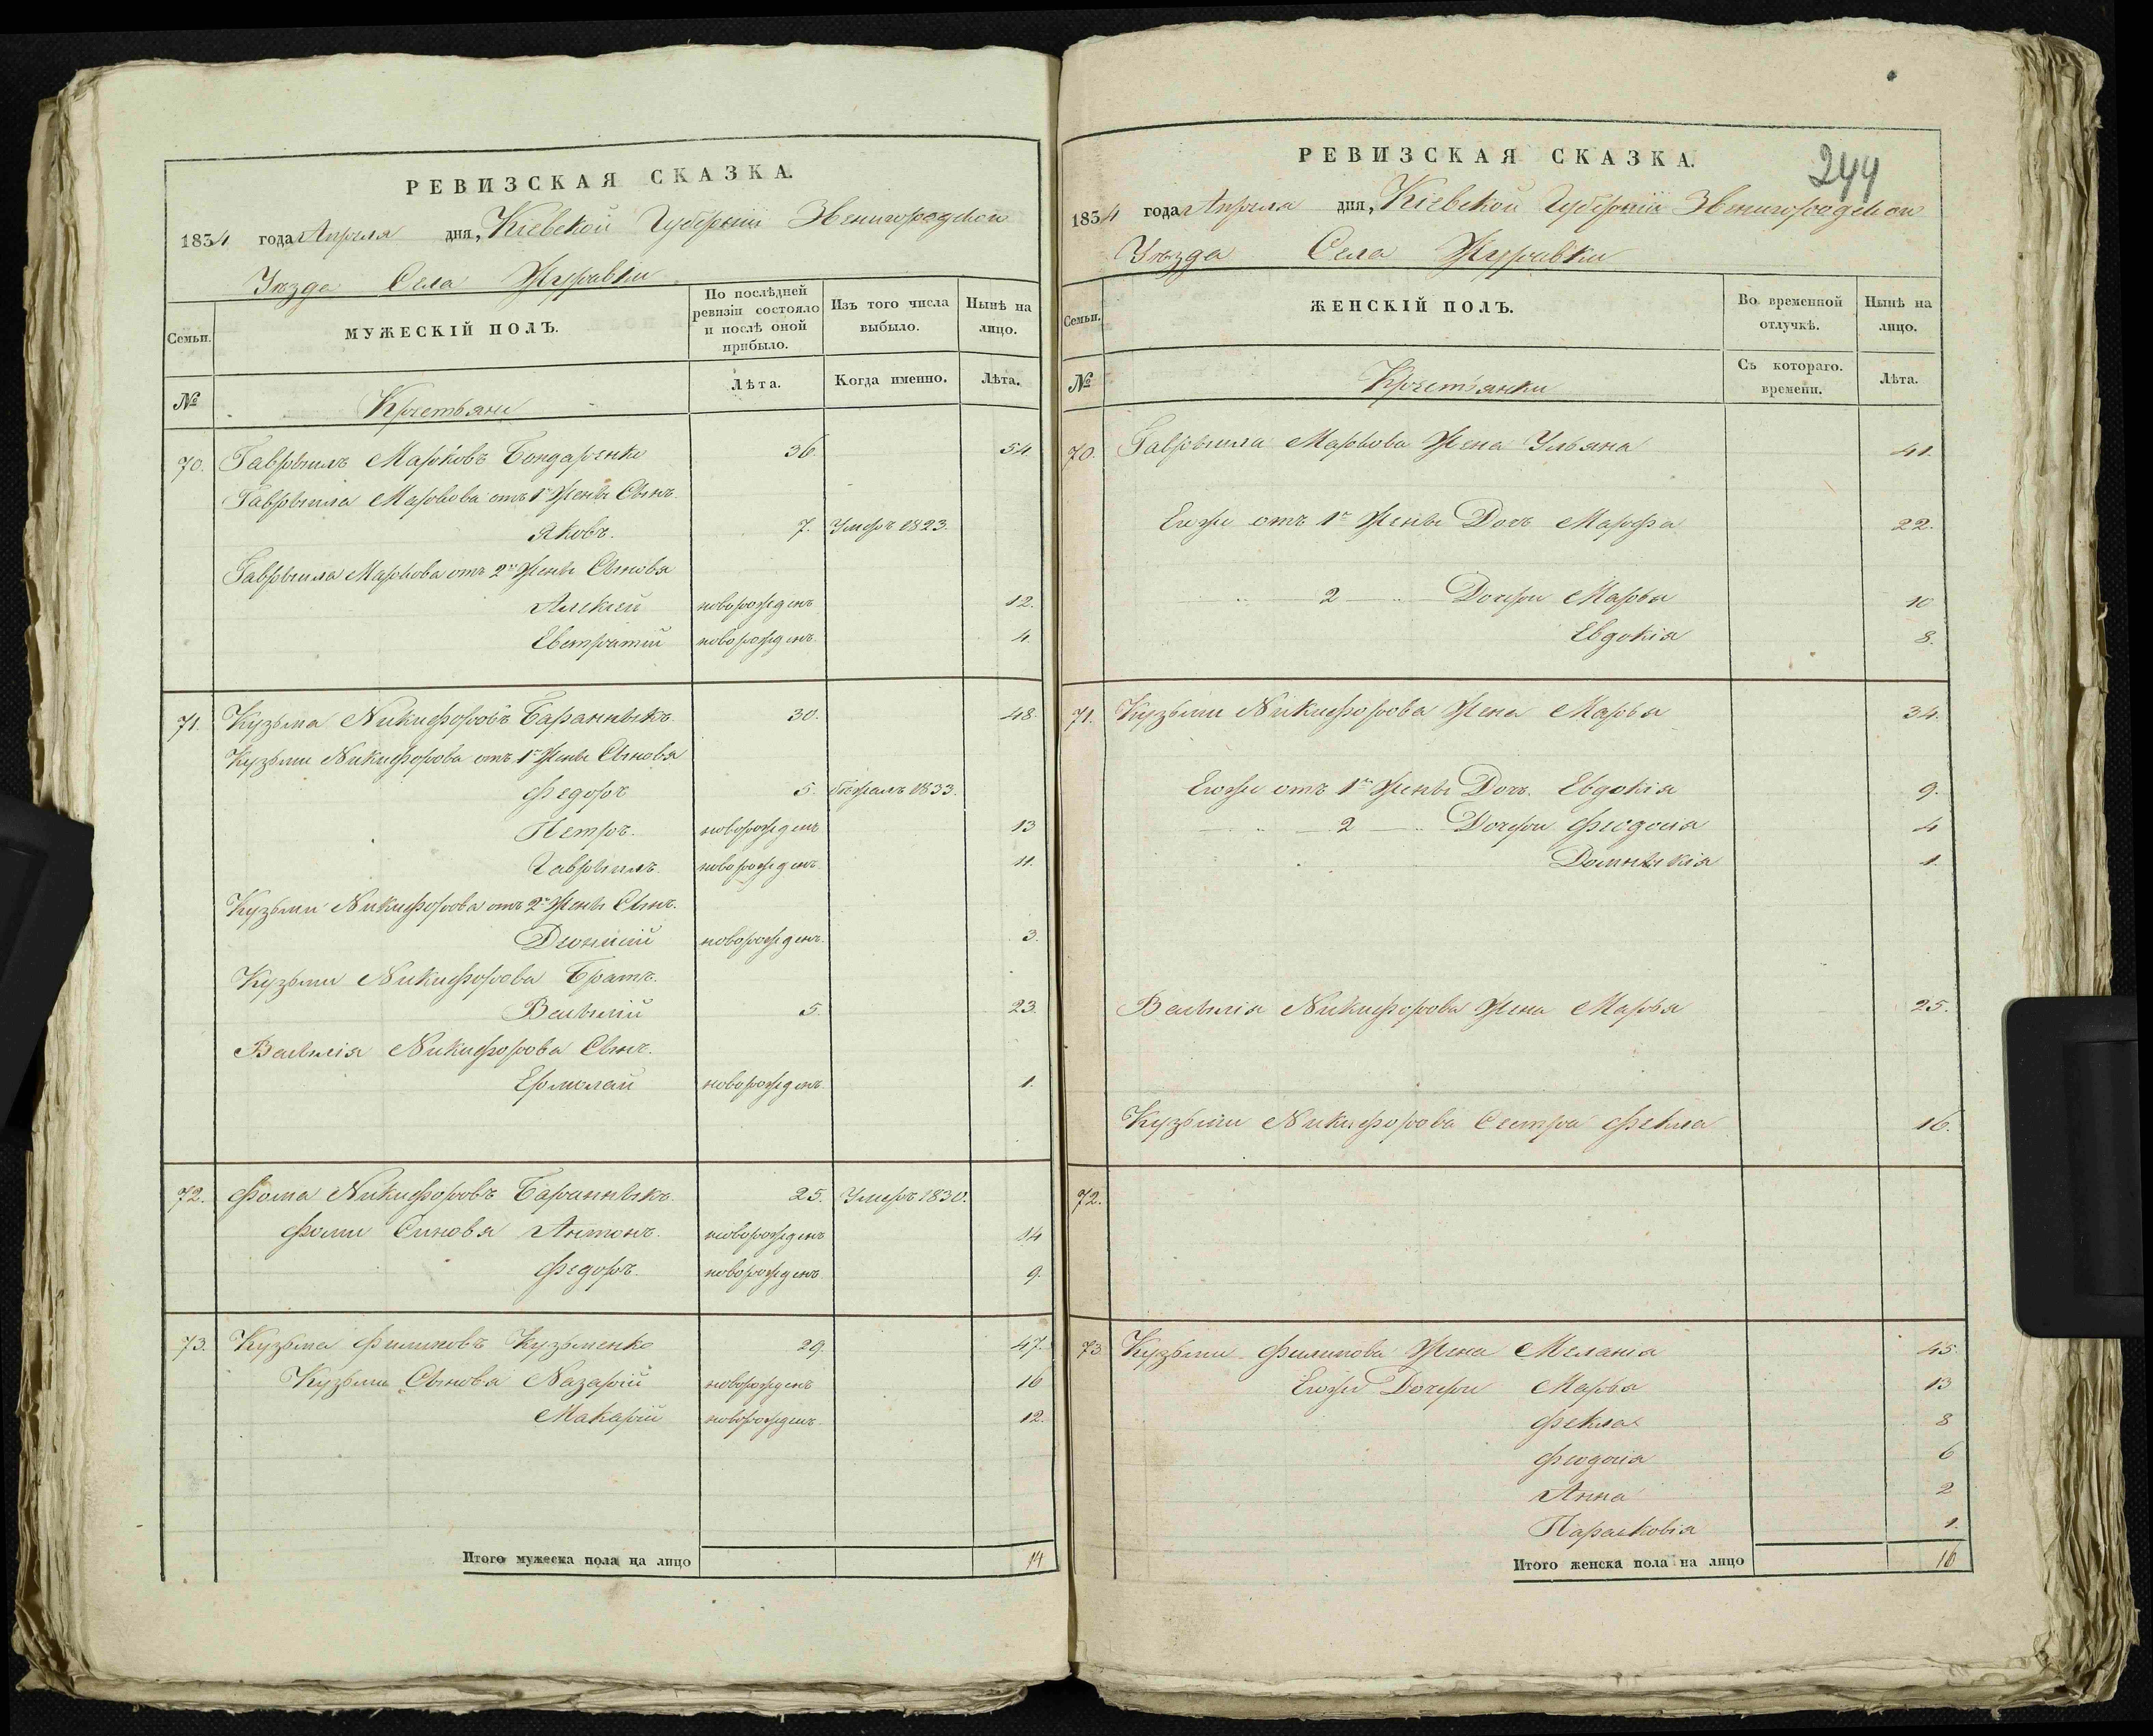 РЕВИЗСКАЯ СКАЗКА.
1834 года Апреля дня, Кіевской Губерніи Звенигородской
Уѣзда Села Журавки
Семьи.
МУЖЕСКІЙ ПОЛЪ.
По послѣдней ревизіи состояло и послѣ оной прибыло.
Изъ того числа выбыло.
Нынѣ на лицо.
№
Крестьяне
Лѣта.
Когда именно.
Лѣта.
70. Гаврыилъ Марковъ Бондаренко 36. 54
Гаврыила Маркова отъ 1й Жены Сынъ
Яковъ. 7. Умеръ 1823.
Гаврыила Маркова отъ 2й Жены Сыновя
Алексей новорожденъ 12.
Евстратій новорожденъ 4
71. Кузьма Никифоровъ Баранныкъ. 30. 48.
Кузьми Никифорова отъ 1й Жены Сыновя
Федоръ 5. бежалъ 1833.
Петръ. новорожденъ 13
Гаврыилъ. новорожденъ 11.
Кузьми Никифорова отъ 2й Жены Сынъ.
Дионисій новорожденъ. 3.
Кузьми Никифорова Братъ.
Васылій 5. 23.
Васылія Никифорова Сынъ.
Ермолай новорожденъ 1.
72. Фома Никифоровъ Баранныкъ. 25. Умеръ 1830.
Фоми Синовя Антонъ. новорожденъ 14
Федоръ. новорожденъ 9.
73. Кузьма Филиповъ Кузьменко 29. 47.
Кузьми Сынова Назарій новорожденъ 16
Макарій новорожденъ 12.
Итого мужеска пола на лицо 14
РЕВИЗСКАЯ СКАЗКА.
244
1834 года Апреля дня, Кіевской Губерніи Звенигородской
Уѣзда Села Журавки
Семьи.
ЖЕНСКІЙ ПОЛЪ.
Во временной отлучкѣ.
Нынѣ на лицо.
№
Крестьянки
Съ котораго. времени.
Лѣта.
70. Гаврыила Маркова Жена Ульяна 41.
Егоже отъ 1й Жены Доч. Марфа 22.
2 Дочери Марья 10
Евдокія 8.
71. Кузьми Никифорова Жена Марья 34.
Егоже отъ 1й Жены Доч. Евдокія 9.
2 Дочери Феодосія 4
Домныкія 1.
Васылія Никифорова Жена Марья 25.
Кузьми Никифорова Сестра Фекла 16.
72.
73. Кузьми Филипова Жена Мелания 45.
Егоже Дочери Марья 13
Фекла 8
Феодосія 6
Анна 2
Парасковія 1.
Итого женска пола на лицо 16